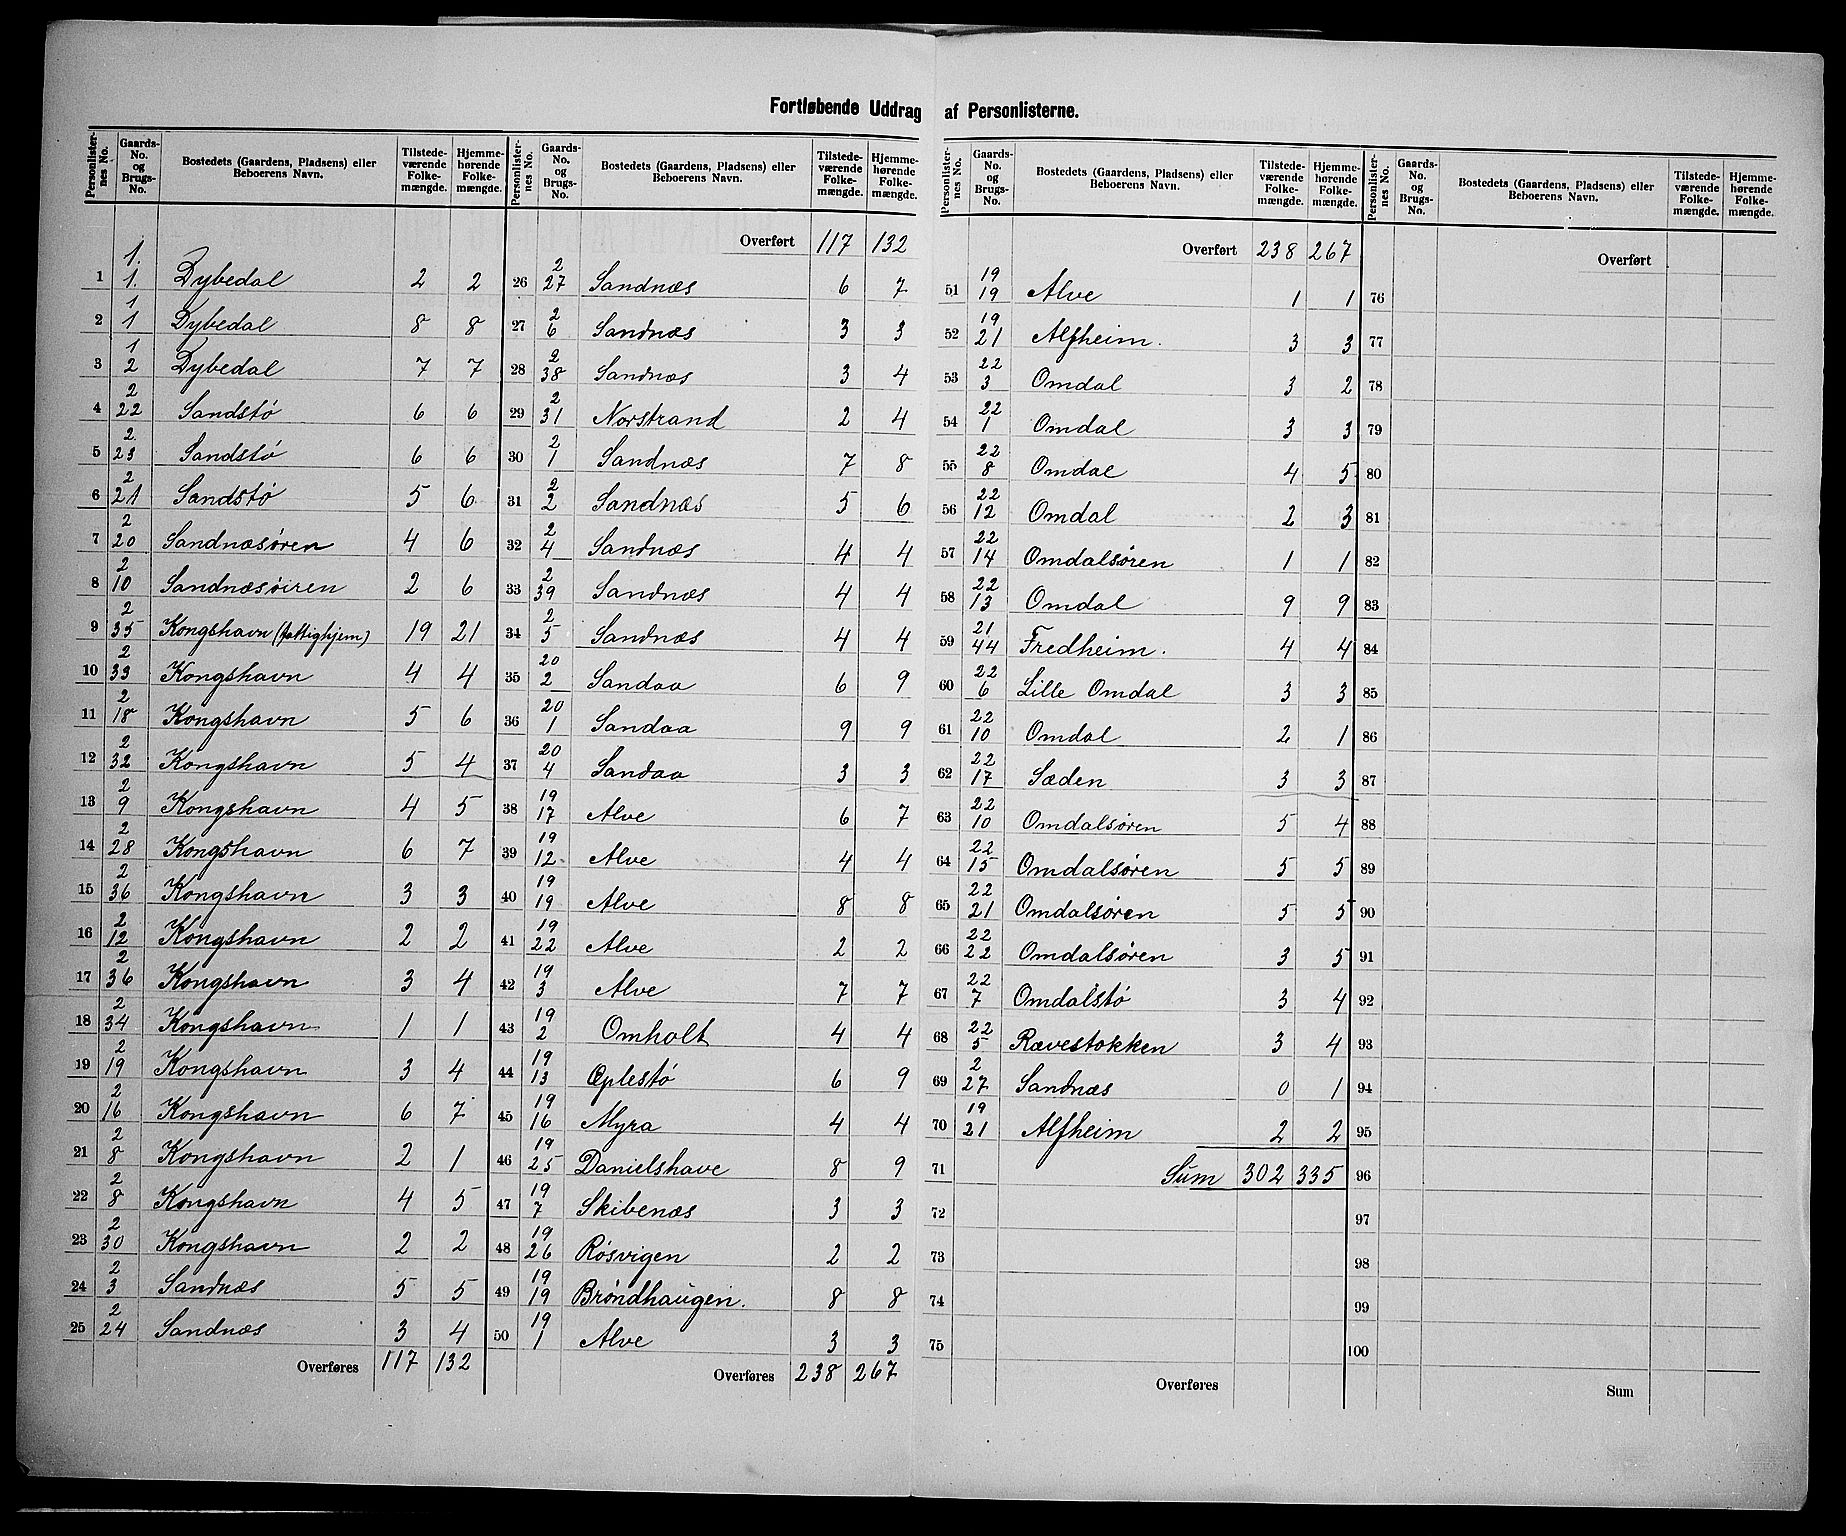 Fortløbende Uddrag af Personlisterne.
Personlisternes No. | Gaards-No. og Brugs-No. | Bostedets (Gaardens, Pladsens) eller Beboerens Navn. | Tilstedeværende Folkemængde. | Hjemmehørende Folkemængde.
1 | 1. 1. | Dybedal | 2 | 2
2 | 1 1 | Dybedal | 8 | 8
3 | 1 2 | Dybedal | 7 | 7
4 | 2 22 | Sandstø | 6 | 6
5 | 2. 23 | Sandstø | 6 | 6
6 | 2 21 | Sandstø | 5 | 6
7 | 2 20 | Sandnæsøren | 4 | 6
8 | 2 10 | Sandnæsøiren | 2 | 6
9 | 2 35 | Kongshavn (fattighjem) | 19 | 21
10 | 2 33 | Kongshavn | 4 | 4
11 | 2 18 | Kongshavn | 5 | 6
12 | 2 32 | Kongshavn | 5 | 4
13 | 2 9 | Kongshavn | 4 | 5
14 | 2 28 | Kongshavn | 6 | 7
15 | 2 36 | Kongshavn | 3 | 3
16 | 2 12 | Kongshavn | 2 | 2
17 | 2 36 | Kongshavn | 3 | 4
18 | 2 34 | Kongshavn | 1 | 1
19 | 2 19 | Kongshavn | 3 | 4
20 | 2 16 | Kongshavn | 6 | 7
21 | 2 8 | Kongshavn | 2 | 1
22 | 2 8 | Kongshavn | 4 | 5
23 | 2 30 | Kongshavn | 2 | 2
24 | 2 3 | Sandnæs | 5 | 5
25 | 2 24 | Sandnæs | 3 | 4
Overføres | 117 | 132
Personlisternes No. | Gaards-No. og Brugs-No. | Bostedets (Gaardens, Pladsens) eller Beboerens Navn. | Tilstedeværende Folkemængde. | Hjemmehørende Folkemængde.
Overført | 117 | 132
26 | 2 27 | Sandnæs | 6 | 7
27 | 2 6 | Sandnæs | 3 | 3
28 | 2 38 | Sandnæs | 3 | 4
29 | 2 31 | Norstrand | 2 | 4
30 | 2 1 | Sandnæs | 7 | 8
31 | 2 2 | Sandnæs | 5 | 6
32 | 2 4 | Sandnæs | 4 | 4
33 | 2 39 | Sandnæs | 4 | 4
34 | 2 5 | Sandnæs | 4 | 4
35 | 20 2 | Sandaa | 6 | 9
36 | 20 1 | Sandaa | 9 | 9
37 | 20 4 | Sandaa | 3 | 3
38 | 19 17 | Alve | 6 | 7
39 | 19 12 | Alve | 4 | 4
40 | 19 19 | Alve | 8 | 8
41 | 19 22 | Alve | 2 | 2
42 | 19 3 | Alve | 7 | 7
43 | 19 2 | Omholt | 4 | 4
44 | 19 13 | Eplestø | 6 | 9
45 | 19 16 | Myra | 4 | 4
46 | 19 25 | Danielshave | 8 | 9
47 | 19 7 | Skibenæs | 3 | 3
48 | 19 26 | Røsvigen | 2 | 2
49 | 19 19 | Brøndhaugen. | 8 | 8
50 | 19 1 | Alve | 3 | 3
Overføres | 238 | 267
Personlisternes No. | Gaards-No. og Brugs-No. | Bostedets (Gaardens, Pladsens) eller Beboerens Navn. | Tilstedeværende Folkemængde. | Hjemmehørende Folkemængde.
Overført | 238 | 267
51 | 19 19 | Alve | 1 | 1
52 | 19 21 | Alfheim. | 3 | 3
53 | 22 3 | Omdal | 3 | 2
54 | 22 1 | Omdal | 3 | 3
55 | 22 8 | Omdal | 4 | 5
56 | 22 12 | Omdal | 2 | 3
57 | 22 14 | Omdalsøren | 1 | 1
58 | 22 13 | Omdal | 9 | 9
59 | 21 44 | Fredheim. | 4 | 4
60 | 22 6 | Lille Omdal | 3 | 3
61 | 22 10 | Omdal | 2 | 1
62 | 22 17 | Sæden | 3 | 3
63 | 22 10 | Omdalsøren | 5 | 4
64 | 22 15 | Omdalsøren | 5 | 5
65 | 22 21 | Omdalsøren | 5 | 5
66 | 22 22 | Omdalsøren | 3 | 5
67 | 22 7 | Omdalstø | 3 | 4
68 | 22 5 | Rævestokken | 3 | 4
69 | 2 27 | Sandnæs | 0 | 1
70 | 19 21 | Alfheim | 2 | 2
71 | Sum | 302 | 335
72
73
74
75
Overføres
Personlisternes No. | Gaards-No. og Brugs-No. | Bostedets (Gaardens, Pladsens) eller Beboerens Navn. | Tilstedeværende Folkemængde. | Hjemmehørende Folkemængde.
Overført
76
77
78
79
80
81
82
83
84
85
86
87
88
89
90
91
92
93
94
95
96
97
98
99
100
Sum